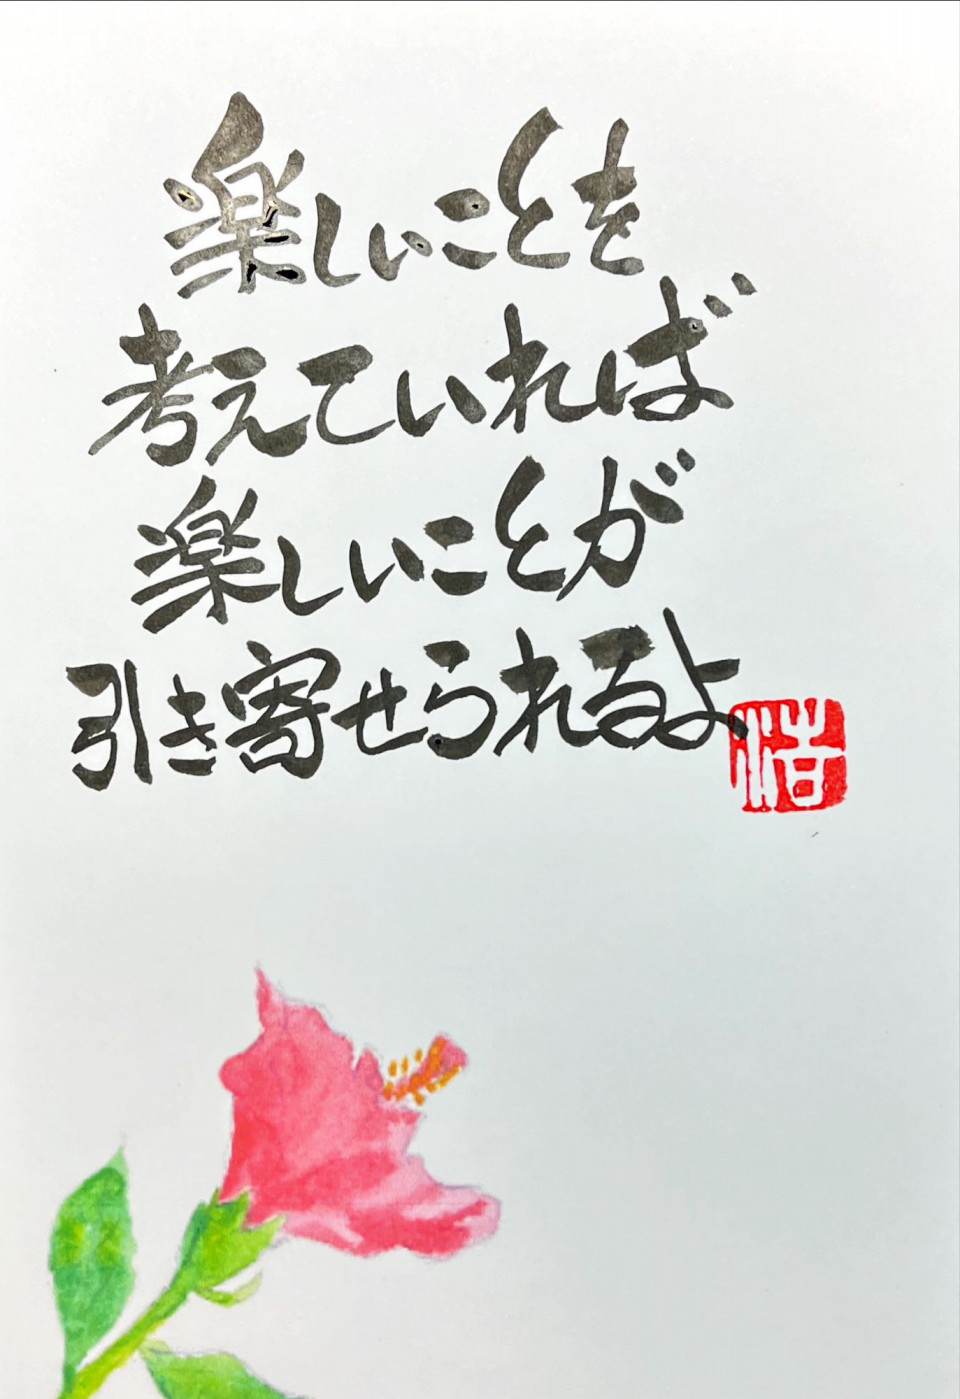 楽しいことを
考えていれば
楽しいことが
引き寄せられるよ